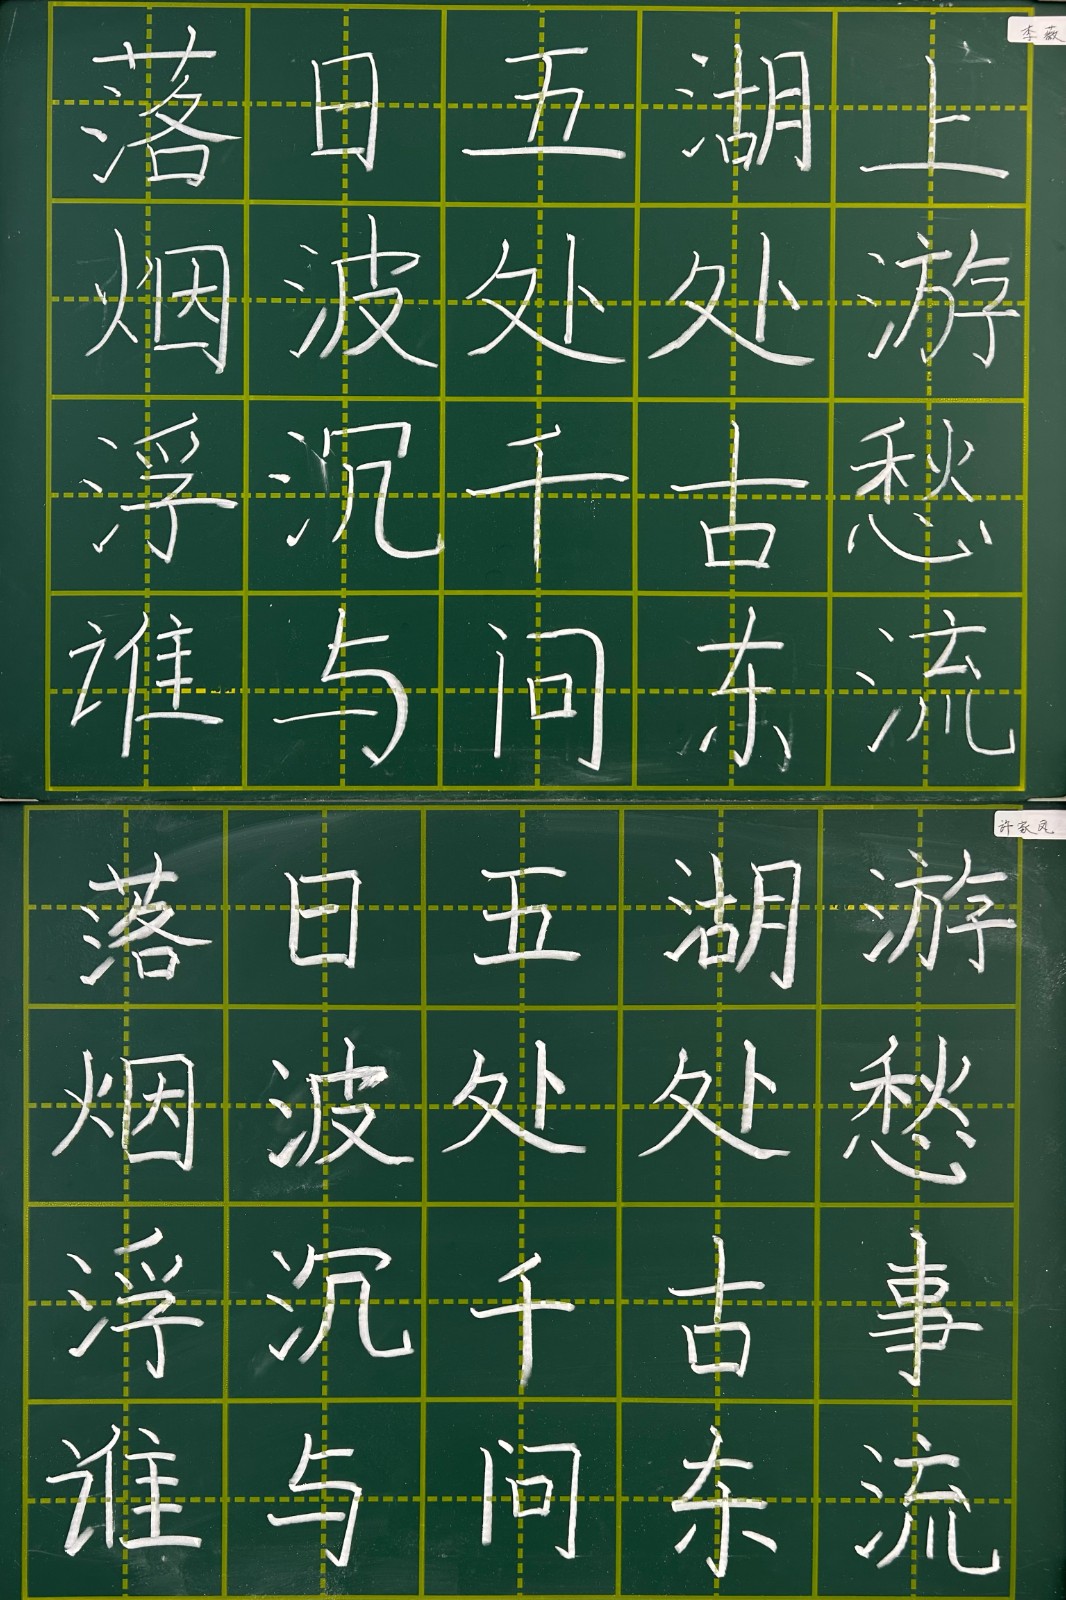 李薇
落日五湖上
烟波处处游
浮沉千古愁
谁与问东流
许家凤
落日五湖游
烟波处处愁
浮沉千古事
谁与问东流